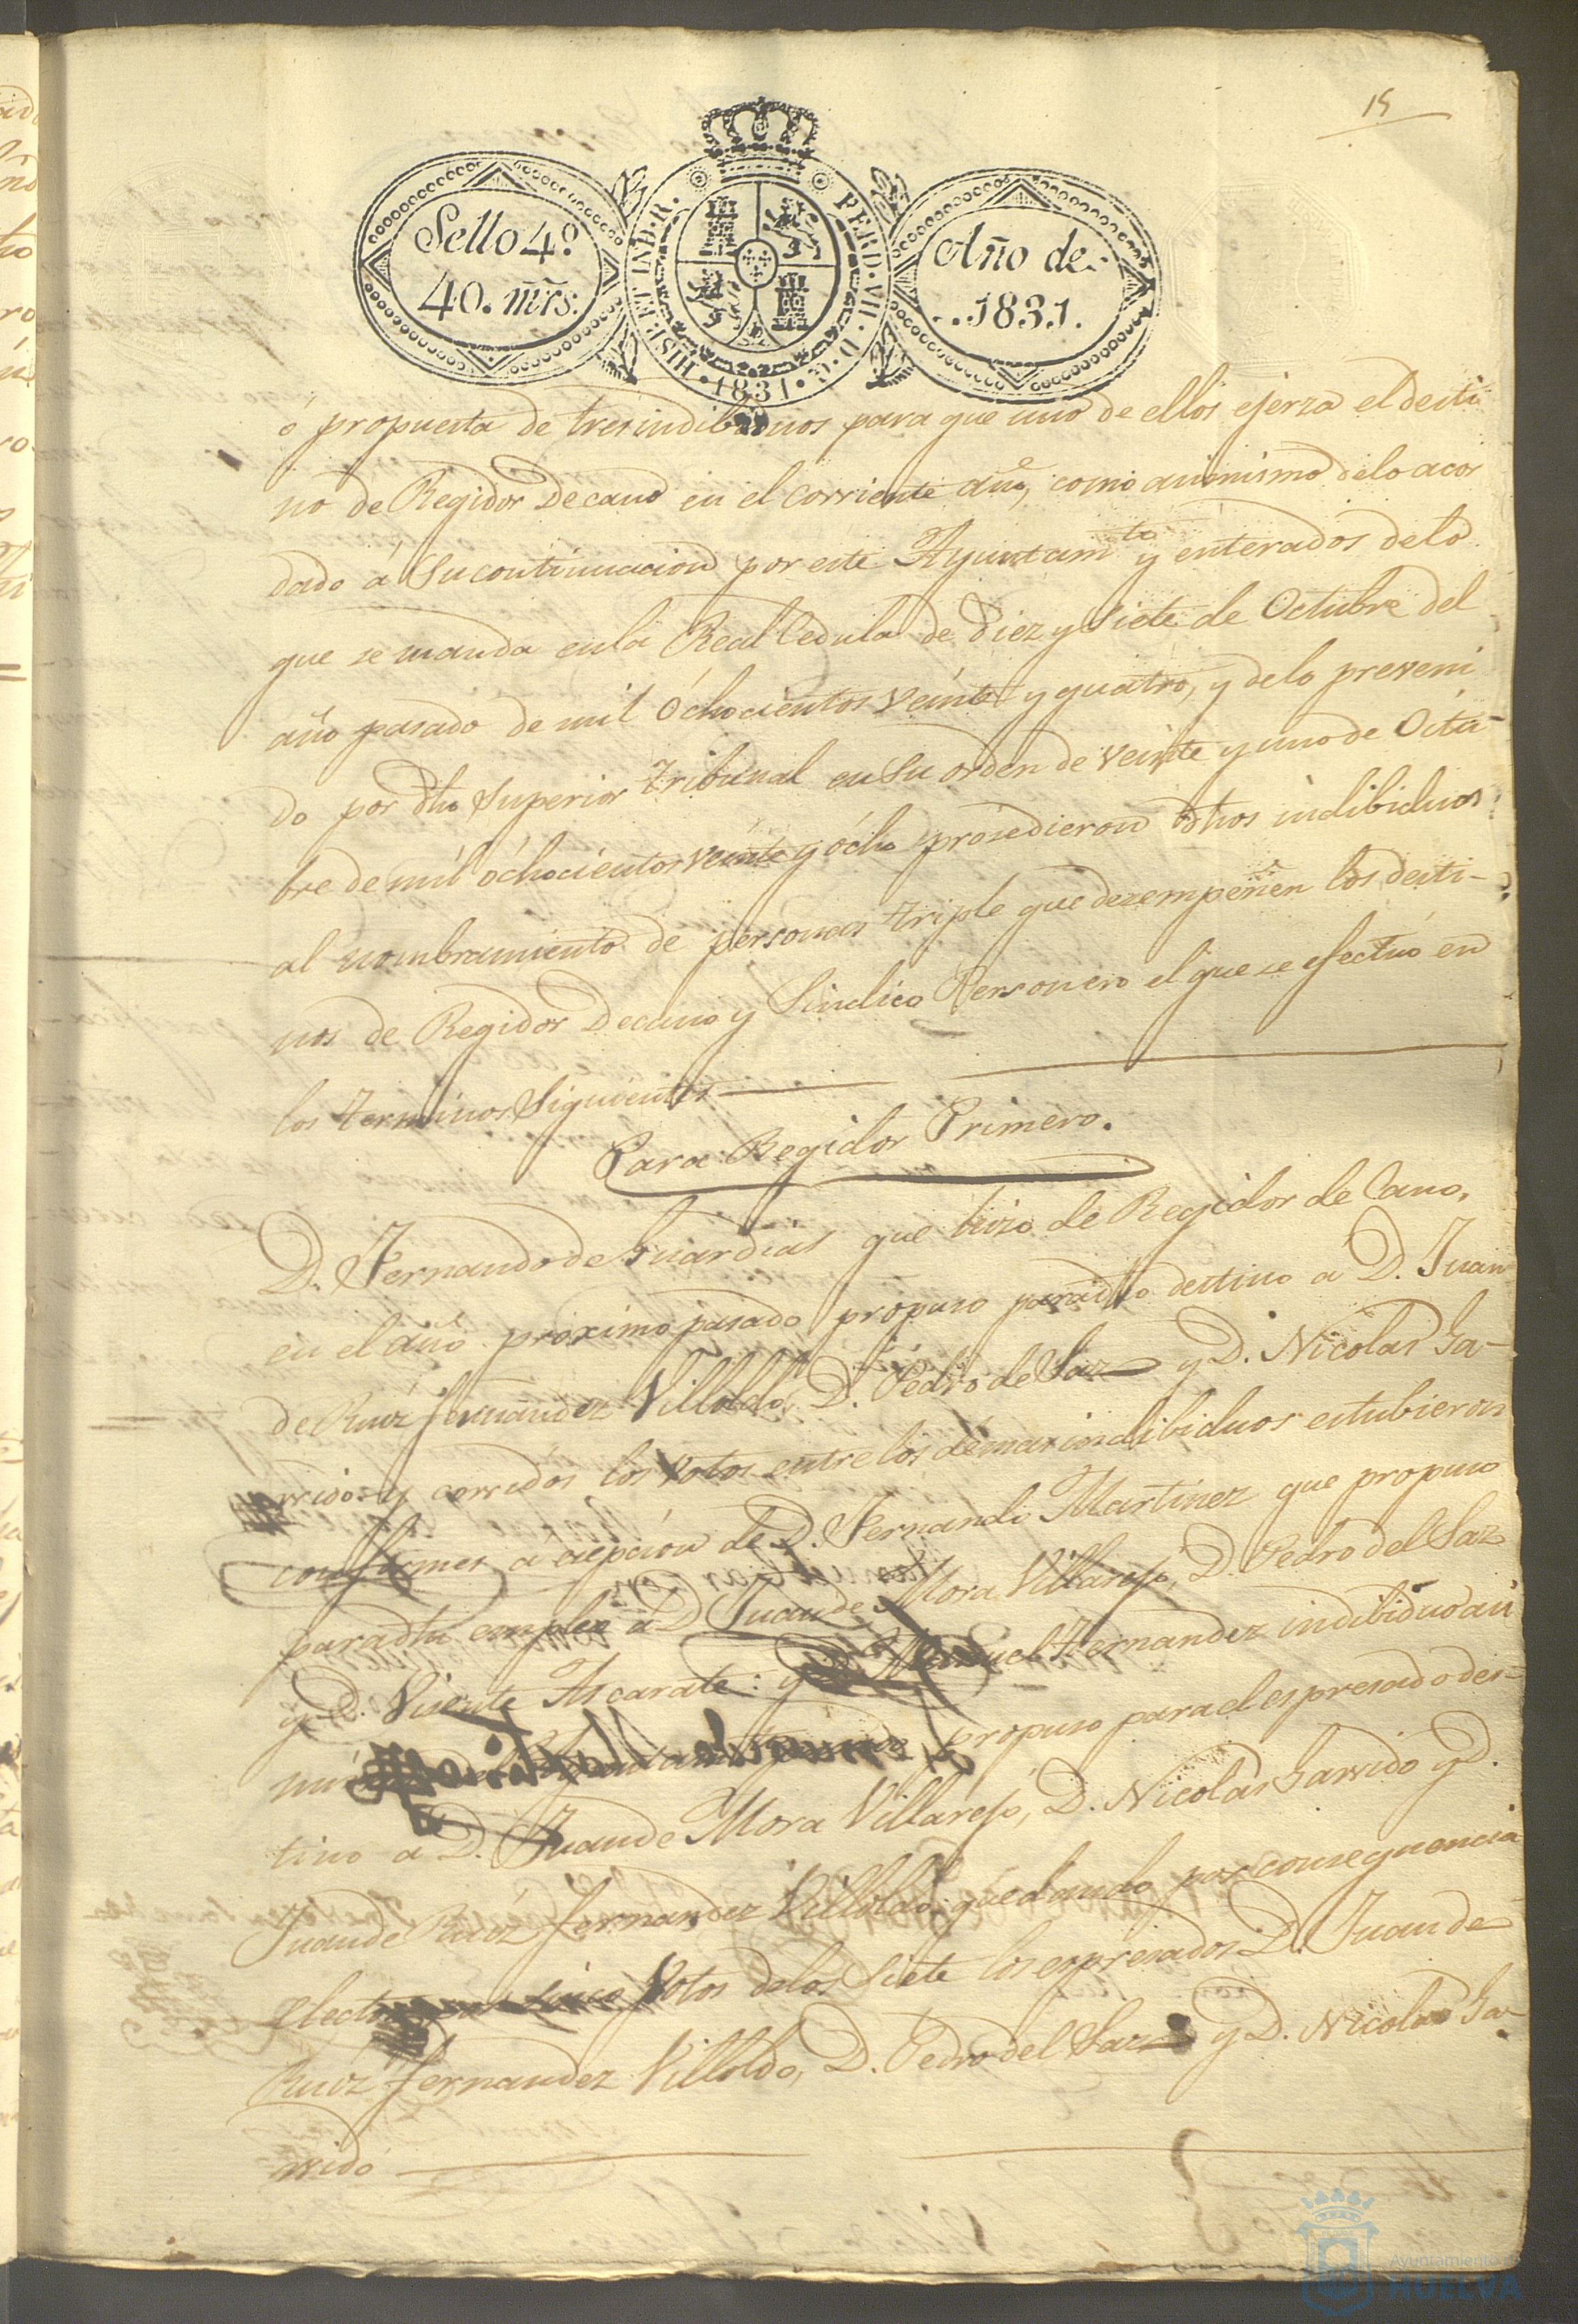 15
Sello 4º
40. mrs.
HISP. ET IND. R. FERD. VII. D. G. 1831.
Año de
1831.
ó propuesta de tres indibiduos para que uno de ellos ejerza el desti
no de Regidor Decano en el corriente año, como asimismo delo acor
dado á su continuacion por este Ayuntamto y enterados delo
que se manda enla Real Cedula de Diez y Siete de Octubre del
año pasado de mil ochocientos veinte y quatro, y delo preveni
do por dho Superior Tribunal en su orden de veinte y uno de Octu-
bre de mil ochocientos veinte y ocho prosedieron dhos indibiduos
al nombramiento de personas triple que dezempeñen los desti-
nos de Regidor Decano y Sindico Personero el que se efectuó en
los terminos Siguientes
Para Regidor Primero.
D. Fernando de Guardias que hizo de Regidor de Cano,
en el año proximo pasado propuso para dho destino a D. Juan
de Ruiz fernandez Villoldo, D. Pedro del Saz y D. Nicolas Ga-
rrido: y corridos los votos entre los demas indibiduos estubieron
conformes a cepcion de D. Fernando Martinez que propuso
para dho empleo á D. Juan de Mora Villarejo, D. Pedro del Saz
y D. Visente Ascarate: y D. Manuel Hernandez indibiduo asi
propuso para el espresado des-
tino a D. Juan de Mora Villarejo, D. Nicolas Garrido y D.
Juan de Ruiz fernandez Villoldo, quedando por consequencia
electos por cinco Votos delos Siete los espresados D. Juan de
Ruiz fernandez Villoldo, D. Pedro del Saz y D. Nicolas Ga-
rrido
Ayuntamiento de
HUELVA